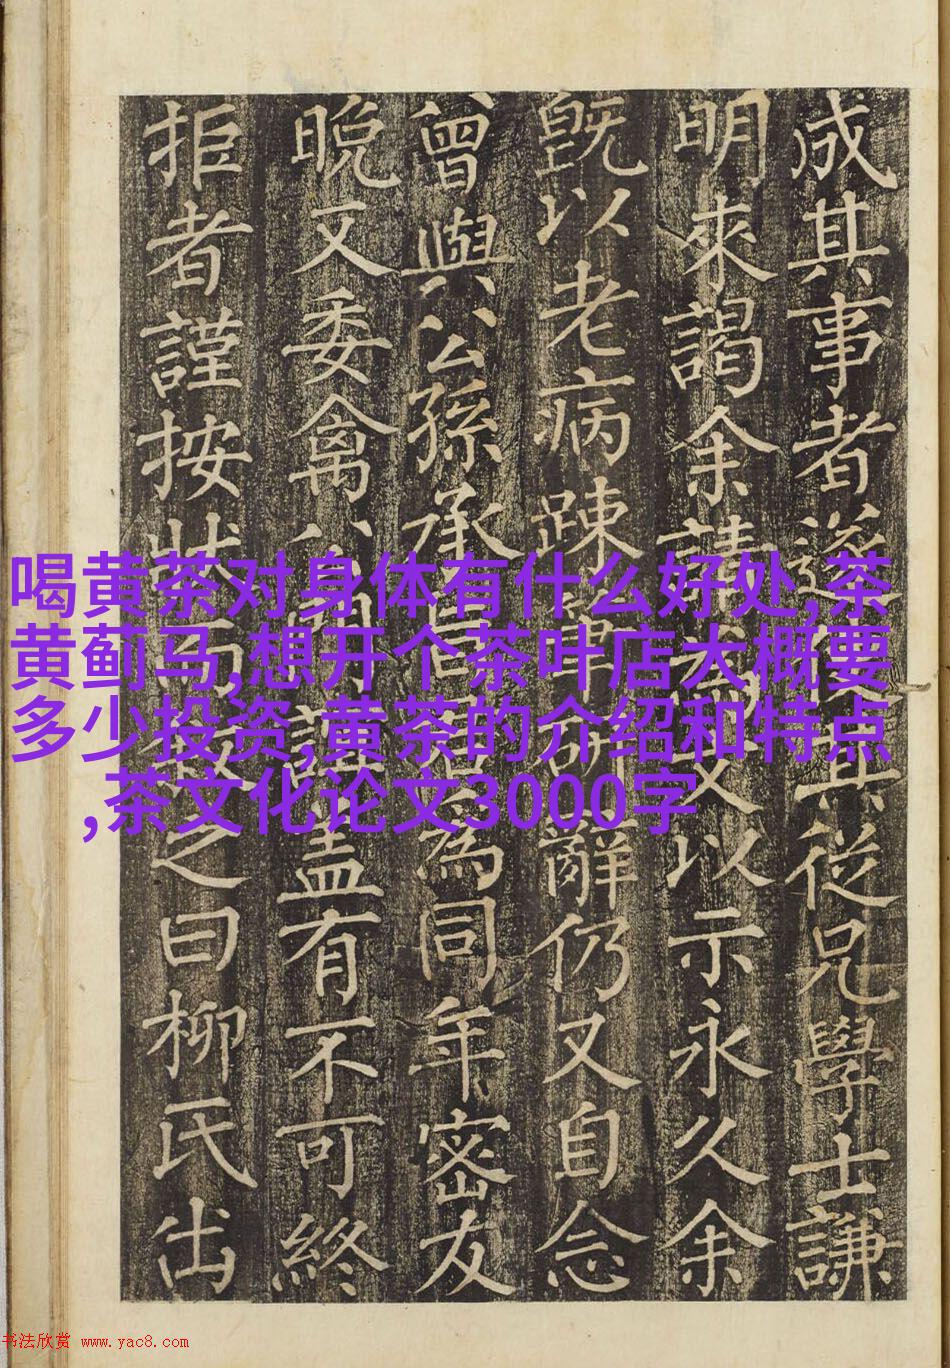 成其事者遂其從兄學士謙
明來謁余請文以示永久余
既以老病踈辭仍又自念
曾與公孫承為同年密友
晚又委禽公門誼蓋有不可終
拒者謹按狀而叙之曰柳氏出
喝黄茶对身体有什么好处,茶
黄蓟马,想开个茶叶店大概要
多少投资,黄茶的介绍和特点
,茶文化论文3000字
书法欣赏 www.yac8.com